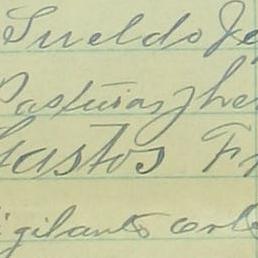 Sueldo Je
Pasturas y he
Gastos F
igilante